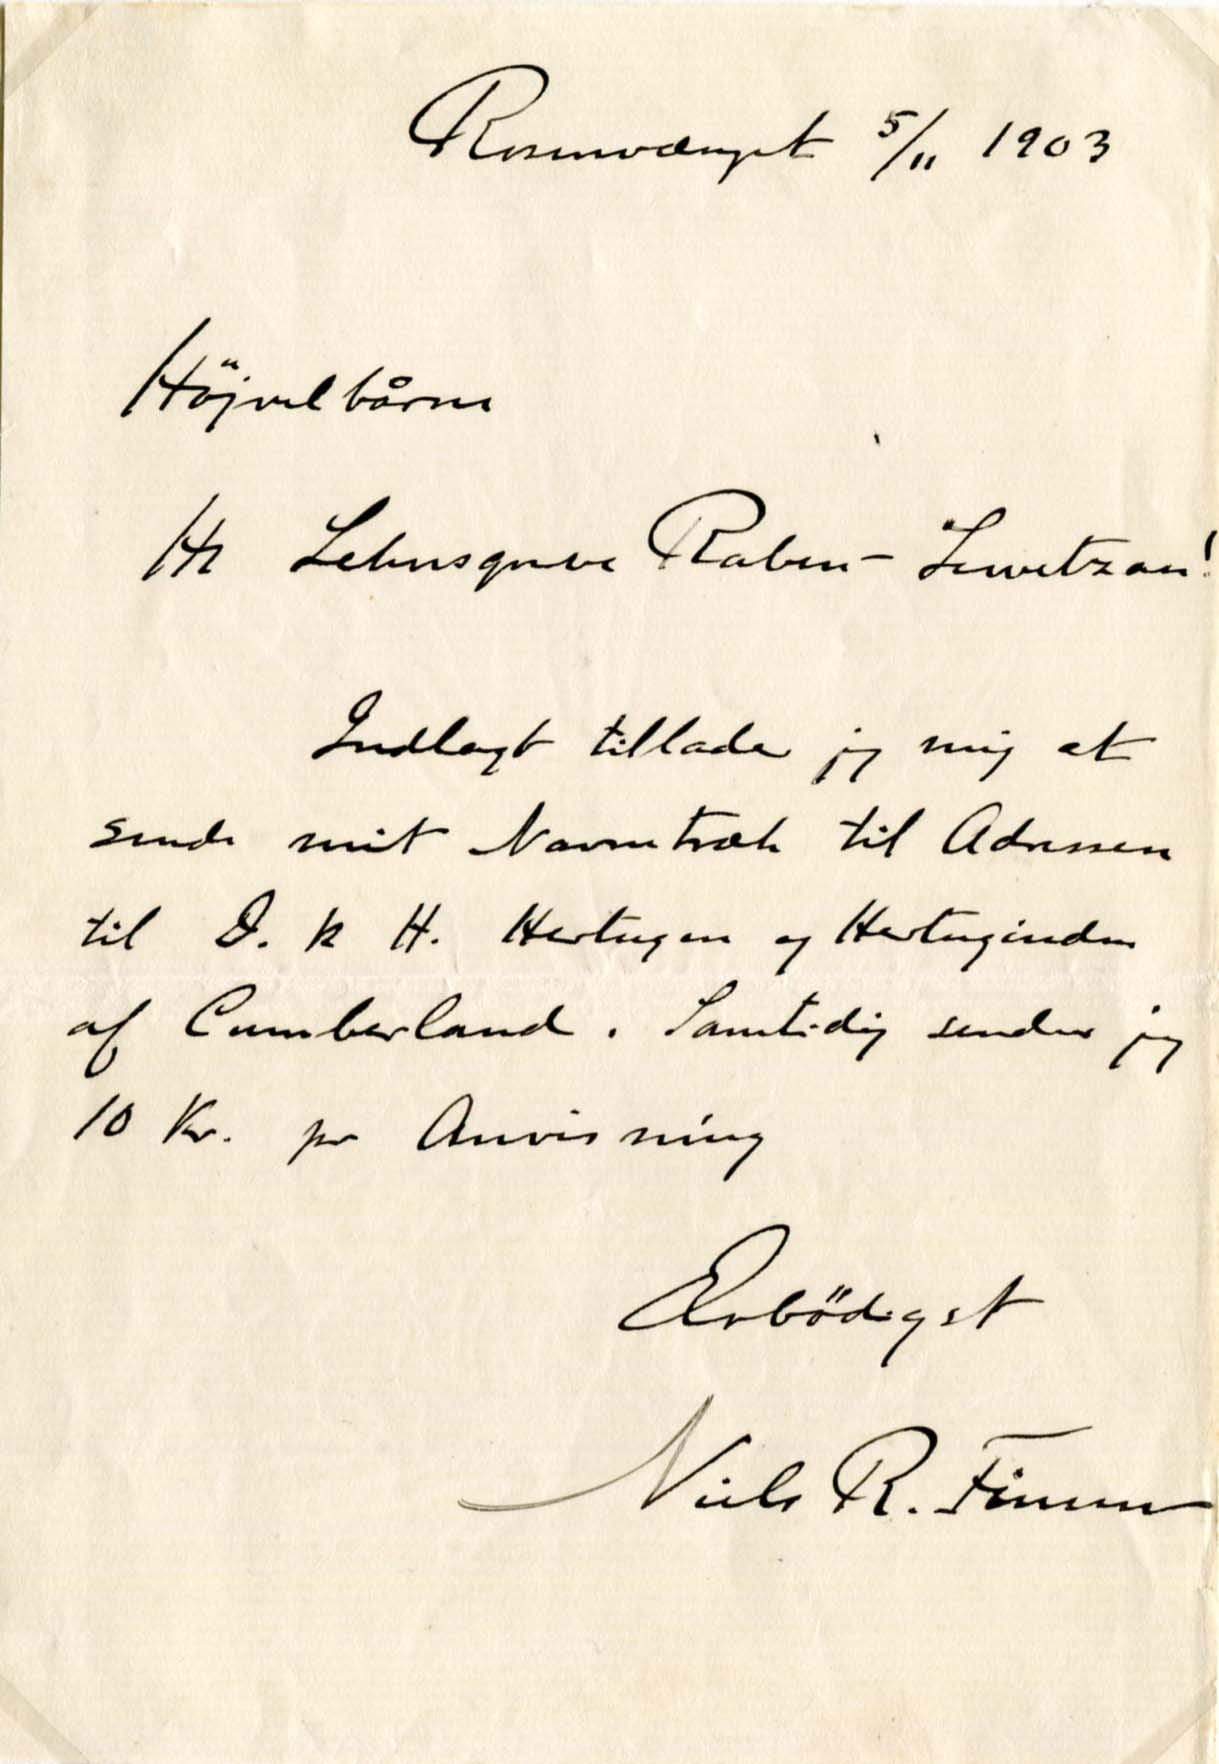 Rosenvænget 5/11 1903
Höjvelbårne
Hr Lehnsgreve Raben-Lewetzau!
Indlagt tillader jeg mig at
sende mit Navnetræk til Adressen
til D. K H. Hertugen og Hertuginden
af Cumberland. Samtidig sender jeg
10 Kr. pr Anvisning
Erbödigst
Niels R. Finsen